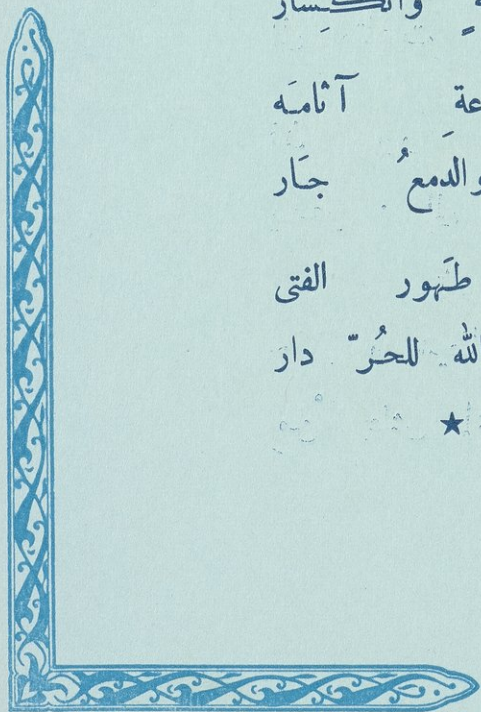 والكسار
آثامه
والدمعُ جَار
طَهور الفتى
للحُرّ دار
★